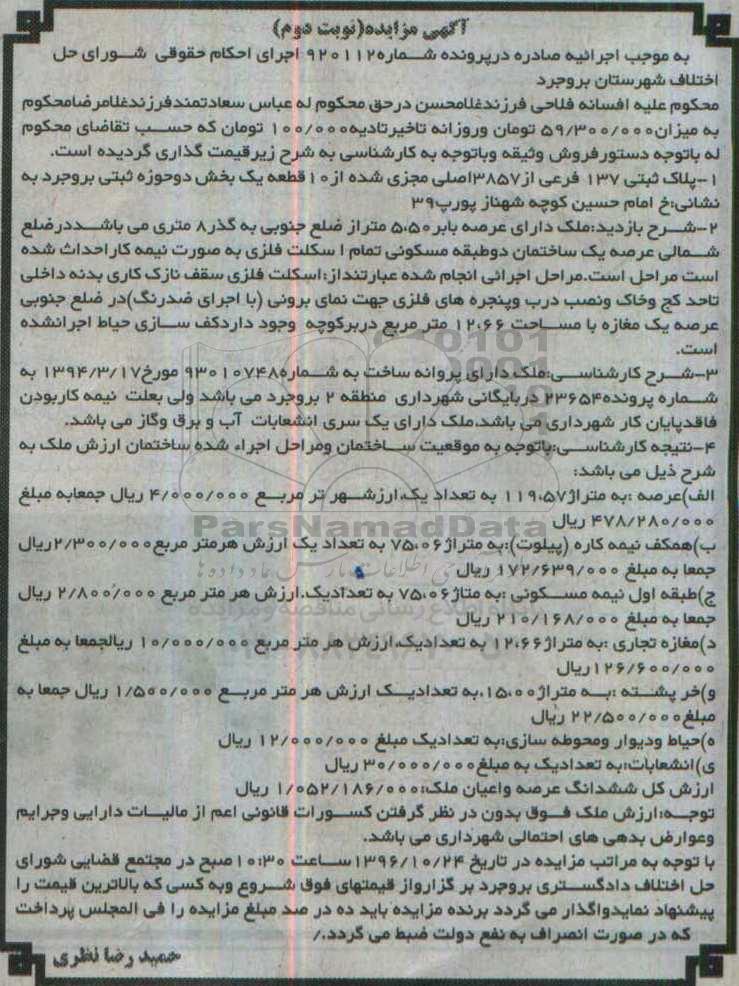 آگهی مزایده(نوبت دوم)
به موجب اجرائیه صادره درپرونده شماره۹۲۰۱۱۲ اجرای احکام حقوقی شورای حل
اختلاف شهرستان بروجرد
محکوم علیه افسانه فلاحی فرزندغلامحسن درحق محکوم له عباس سعادتمندفرزندغلامرضامحکوم
به میزان۵۹/۳۰۰/۰۰۰ تومان وروزانه تاخیرتادیه۱۰۰/۰۰۰ تومان که حسب تقاضای محکوم
له باتوجه دستورفروش وثیقه وباتوجه به کارشناسی به شرح زیرقیمت گذاری گردیده است.
۱-پلاک ثبتی ۱۳۷ فرعی از۳۸۵۷اصلی مجزی شده از۱۰قطعه یک بخش دوحوزه ثبتی بروجرد به
نشانی:خ امام حسین کوچه شهناز پورپ۳۹
۲-شرح بازدید:ملک دارای عرصه بابر۵،۵۰ متراز ضلع جنوبی به گذر۸ متری می باشددرضلع
شمالی عرصه یک ساختمان دوطبقه مسکونی تمام ا سکلت فلزی به صورت نیمه کاراحداث شده
است مراحل است.مراحل اجرائی انجام شده عبارتنداز:اسکلت فلزی سقف نازک کاری بدنه داخلی
تاحد کچ وخاک ونصب درب وپنجره های فلزی جهت نمای برونی (با اجرای ضدرنگ)در ضلع جنوبی
عرصه یک مغازه با مساحت ۱۲،۶۶ متر مربع دربرکوچه وجود داردکف سازی حیاط اجرانشده
است.
۳-شرح کارشناسی:ملک دارای پروانه ساخت به شماره۹۳۰۱۰۷۴۸ مورخ۱۳۹۴/۳/۱۷ به
شماره پرونده۲۳۶۵۴ دربایگانی شهرداری منطقه ۲ بروجرد می باشد ولی بعلت نیمه کاربودن
فاقدپایان کار شهرداری می باشد،ملک دارای یک سری انشعابات آب و برق وگاز می باشد.
۴-نتیجه کارشناسی:باتوجه به موقعیت ساختمان ومراحل اجراء شده ساختمان ارزش ملک به
شرح ذیل می باشد:
الف)عرصه :به متراژ۱۱۹،۵۷ به تعداد یک،ارزشهر تر مربع ۴/۰۰۰/۰۰۰ ریال جمعابه مبلغ
۴۷۸/۲۸۰/۰۰۰ ریال
ParsNamadData
ب)همکف نیمه کاره (پیلوت):به متراژ۷۵،۰۶ به تعداد یک ارزش هرمتر مربع۲/۳۰۰/۰۰۰ریال
جمعا به مبلغ ۱۷۲/۶۳۹/۰۰۰ ریال
ج)طبقه اول نیمه مسکونی :به متاژ۷۵،۰۶ به تعدادیک،ارزش هر متر مربع ۲/۸۰۰/۰۰۰ ریال
جمعا به مبلغ ۲۱۰/۱۶۸/۰۰۰ ریال
د)مغازه تجاری :به متراژ۱۲،۶۶ به تعدادیک،ارزش هر متر مربع ۱۰/۰۰۰/۰۰۰ ریالجمعا به مبلغ
۱۲۶/۶۰۰/۰۰۰ریال
و)خر پشته :به متراژ۱۵،۰۰،به تعدادیک ارزش هر متر مربع ۱/۵۰۰/۰۰۰ ریال جمعا به
مبلغ۲۲/۵۰۰/۰۰۰ ریال
ه)حیاط ودیوار ومحوطه سازی:به تعدادیک مبلغ ۱۲/۰۰۰/۰۰۰ ریال
ی)انشعابات:به تعدادیک به مبلغ۳۰/۰۰۰/۰۰۰ ریال
ارزش کل ششدانگ عرصه واعیان ملک:۱/۰۵۲/۱۸۶/۰۰۰ ریال
توجه:ارزش ملک فوق بدون در نظر گرفتن کسورات قانونی اعم از مالیات دارایی وجرایم
وعوارض بدهی های احتمالی شهرداری می باشد.
با توجه به مراتب مزایده در تاریخ ۱۳۹۶/۱۰/۲۴ساعت ۱۰:۳۰صبح در مجتمع قضایی شورای
حل اختلاف دادگستری بروجرد بر گزارواز قیمتهای فوق شروع وبه کسی که بالاترین قیمت را
پیشنهاد نمایدواگذار می گردد برنده مزایده باید ده در صد مبلغ مزایده را فی المجلس پرداخت
که در صورت انصراف به نفع دولت ضبط می گردد./
حمید رضا نظری